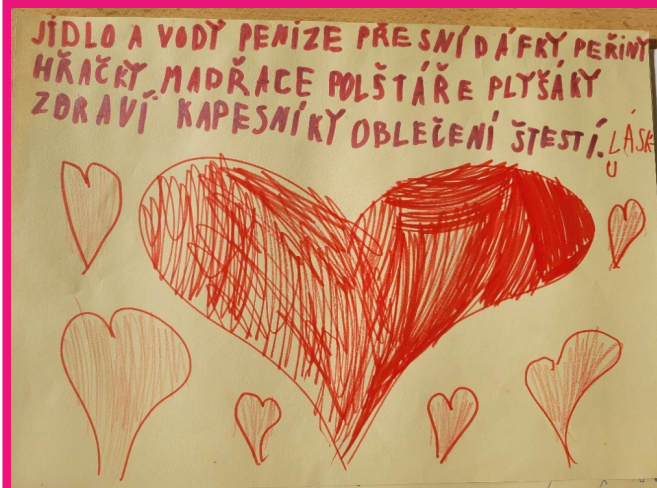 JÍDLO A VODY PENÍZE PŘESNÍDÁFKY PEŘINY
HŘAČKY MADŘACE POLŠTÁŘE PLYŠÁKY
ZDRAVÍ KAPESNÍKY OBLEČENÍ ŠTESTÍ. LÁSK
U